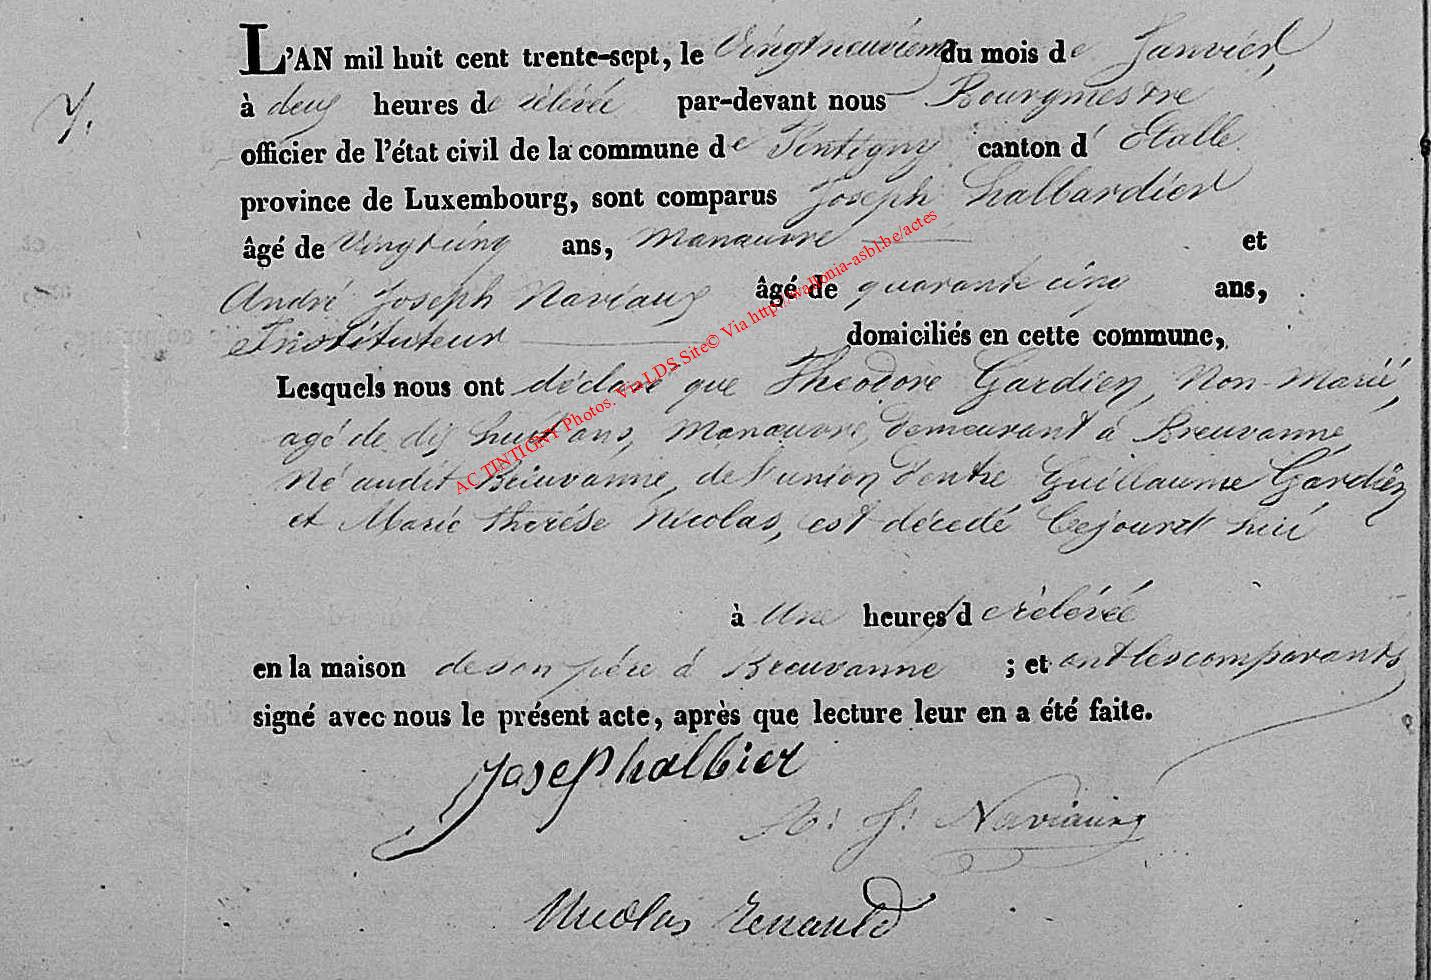 7.
L'AN mil huit cent trente-sept, le Vingt neuvième du mois de Janvier,
à deux heures de rélévée par-devant nous Bourgmestre
officier de l'état civil de la commune de Tintigny canton d' Etalle
province de Luxembourg, sont comparus Joseph halbardier
âgé de Vingt cinq ans, Manœuvre et
André Joseph Naviaux âgé de quarante cinq ans,
Instituteur domiciliés en cette commune,
Lesquels nous ont déclaré que Théodore Gardien, Non-Marié,
agé de dix huit ans, Manœuvre, demeurant à Breuvanne,
Né audit Breuvanne, de l'union d'entre Guillaume Gardien
et Marie thérése Nicolas, est décedé Cejourd'huit
à Une heures de rélévée
en la maison de son père à Breuvanne ; et ont les comparants
signé avec nous le présent acte, après que lecture leur en a été faite.
Joseph halbier
A. J. Naviaux
Nicolas Renauld
AC TINTIGNY Photos. Via LDS Site© Via http://wallonia-asbl.be/actes